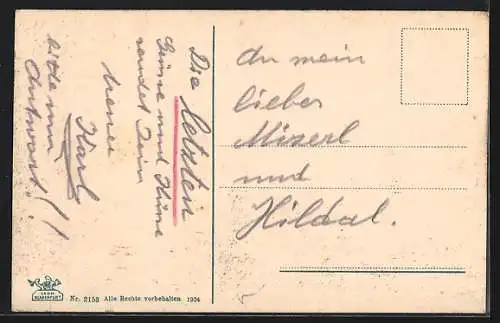 Die letzten
Grüsse und Küsse
sendet Dein
treuer
Karl
bitte um
Antwort!!
An mein
lieber
Mizerl
und
Hildal.
Nr. 2153 Alle Rechte vorbehalten 1904